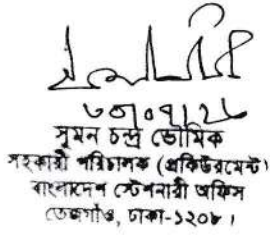 ৩০/০৭/২৮
সুমন চন্দ্র ভৌমিক
সহকারী পরিচালক (প্রকিউরমেন্ট)
বাংলাদেশ স্টেশনারী অফিস
তেজগাঁও, ঢাকা-১২০৮।